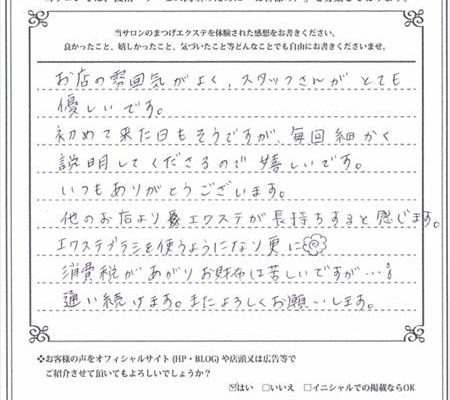 当サロンのまつげエクステを体験された感想をお書きください。
良かったこと、嬉しかったこと、気づいたこと等どんなことでも自由にお書きくださいませ。
お店の雰囲気がよく、スタッフさんがとても
優しいです。
初めて来た日もそうですが、毎回細かく
説明してくださるので嬉しいです。
いつもありがとうございます。
他のお店よりエクステが長持ちすると感じます。
エクステブラシを使うようになり更に
消費税があがりお財布は苦しいですが…!
通い続けます。またよろしくお願いします。
❖お客様の声をオフィシャルサイト(HP・BLOG)や店頭又は広告等で
ご紹介させて頂いてもよろしいでしょうか?
☑はい □いいえ □イニシャルでの掲載ならOK